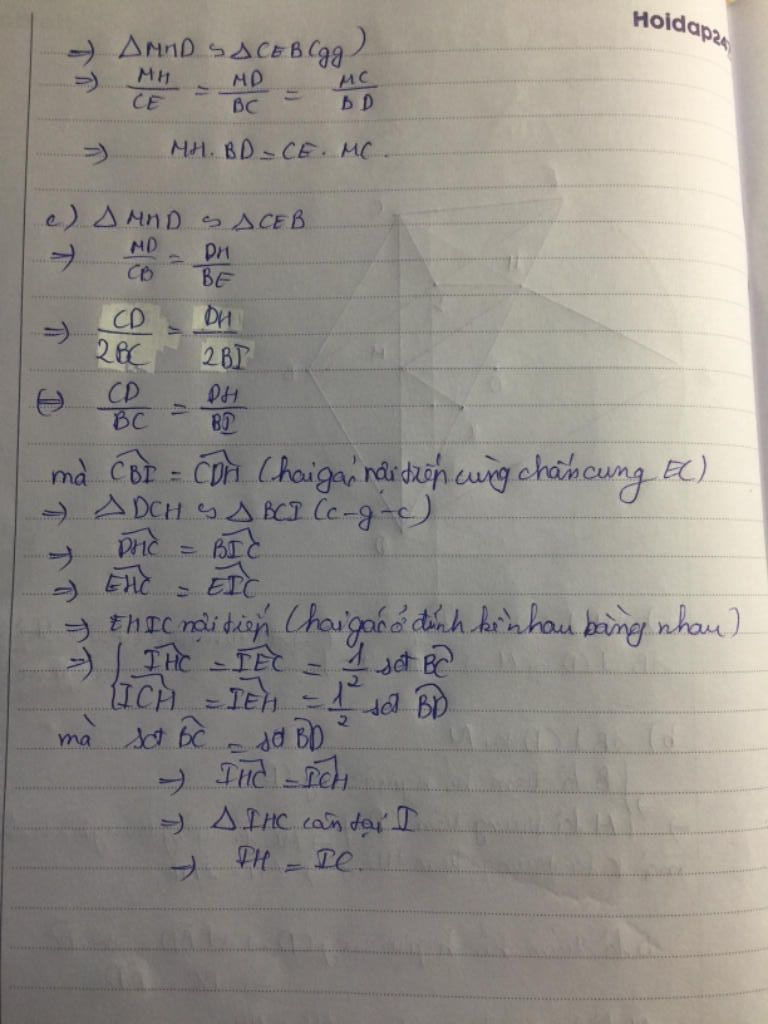 Hoidap247
=> △MHD ∽ △CEB (gg)
=> MH/CE = MD/BC = MC/BD
=> MH.BD = CE.MC.
c) △MHD ∽ △CEB
=> MD/CB = DH/BE
=> CD/2BC = DH/2BI
<=> CD/BC = DH/BI
mà CBI = CDH (hai góc nội tiếp cùng chắn cung EC)
=> △DCH ∽ △BCI (c-g-c)
=> DHC = BIC
=> EHC = EIC
=> EHIC nội tiếp (hai góc ở đỉnh kề nhau bằng nhau)
=> { IHC = IEC = 1/2 sđ BC
ICH = IEH = 1/2 sđ BD
mà sđ BC = sđ BD
=> IHC = ICH
=> △IHC cân tại I
=> IH = IC.